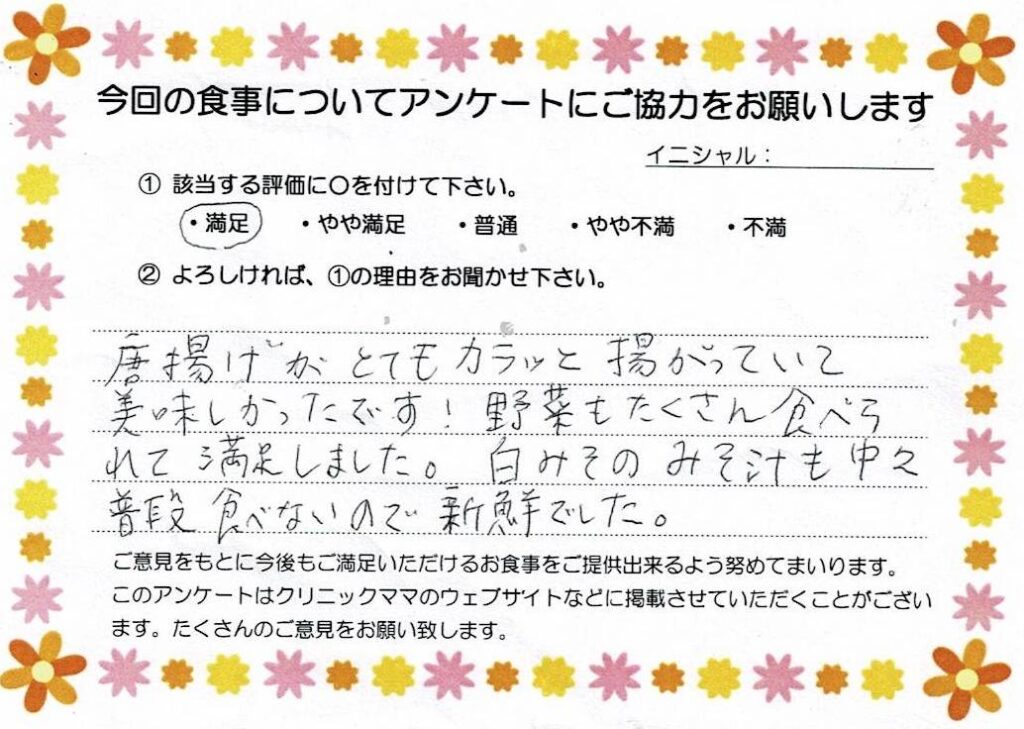 今回の食事についてアンケートにご協力をお願いします
イニシャル：
① 該当する評価に〇を付けて下さい。
・満足 ・やや満足 ・普通 ・やや不満 ・不満
② よろしければ、①の理由をお聞かせ下さい。
唐揚げがとてもカラッと揚がっていて
美味しかったです！野菜もたくさん食べら
れて満足しました。白みそのみそ汁も中々
普段食べないので新鮮でした。
ご意見をもとに今後もご満足いただけるお食事をご提供出来るよう努めてまいります。
このアンケートはクリニックママのウェブサイトなどに掲載させていただくことがござい
ます。たくさんのご意見をお願い致します。